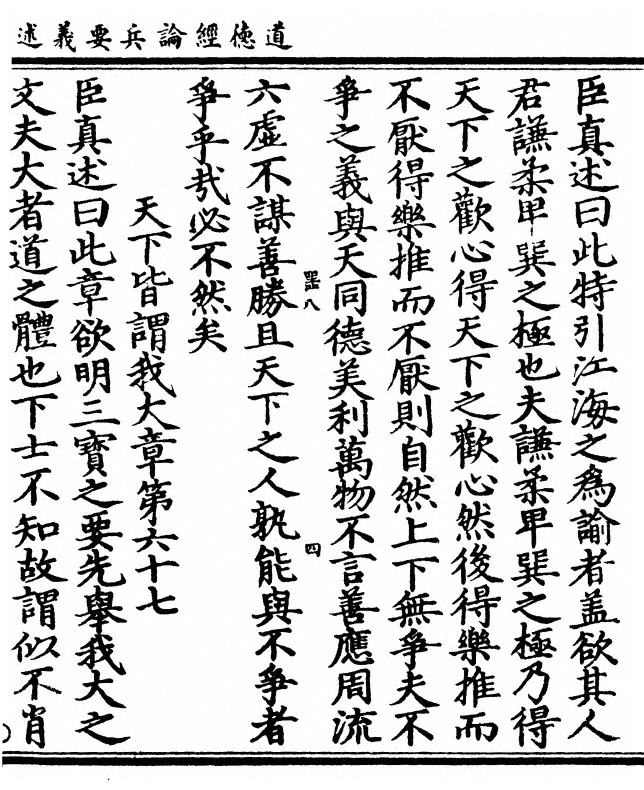 道德經論兵要義述
臣真述曰此特引江海之為諭者盖欲其人
君謙柔卑巽之極也夫謙柔卑巽之極乃得
天下之歡心得天下之歡心然後得樂推而
不厭得樂推而不厭則自然上下無爭夫不
爭之義與天同德美利萬物不言善應周流
八
四
六虛不謀善勝且天下之人孰能與不爭者
爭乎㢤必不然矣
天下皆謂我大章第六十七
臣真述曰此章欲明三寶之要先舉我大之
文夫大者道之體也下士不知故謂似不肖